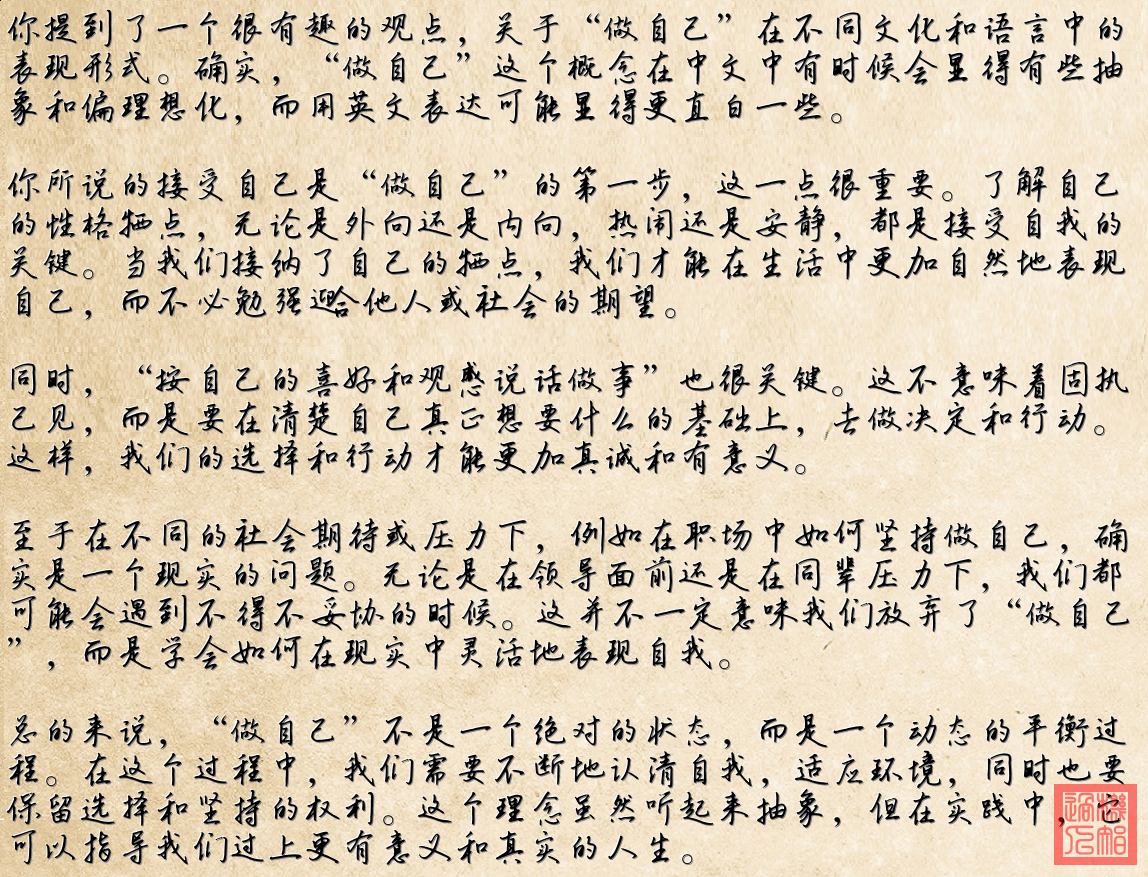 你提到了一个很有趣的观点，关于“做自己”在不同文化和语言中的
表现形式。确实，“做自己”这个概念在中文中有时候会显得有些抽
象和偏理想化，而用英文表达可能显得更直白一些。
你所说的接受自己是“做自己”的第一步，这一点很重要。了解自己
的性格特点，无论是外向还是内向，热闹还是安静，都是接受自我的
关键。当我们接纳了自己的特点，我们才能在生活中更加自然地表现
自己，而不必勉强迎合他人或社会的期望。
同时，“按自己的喜好和观感说话做事”也很关键。这不意味着固执
己见，而是要在清楚自己真正想要什么的基础上，去做决定和行动。
这样，我们的选择和行动才能更加真诚和有意义。
至于在不同的社会期待或压力下，例如在职场中如何坚持做自己，确
实是一个现实的问题。无论是在领导面前还是在同辈压力下，我们都
可能会遇到不得不妥协的时候。这并不一定意味我们放弃了“做自己
”，而是学会如何在现实中灵活地表现自我。
总的来说，“做自己”不是一个绝对的状态，而是一个动态的平衡过
程。在这个过程中，我们需要不断地认清自我，适应环境，同时也要
保留选择和坚持的权利。这个理念虽然听起来抽象，但在实践中，它
可以指导我们过上更有意义和真实的人生。